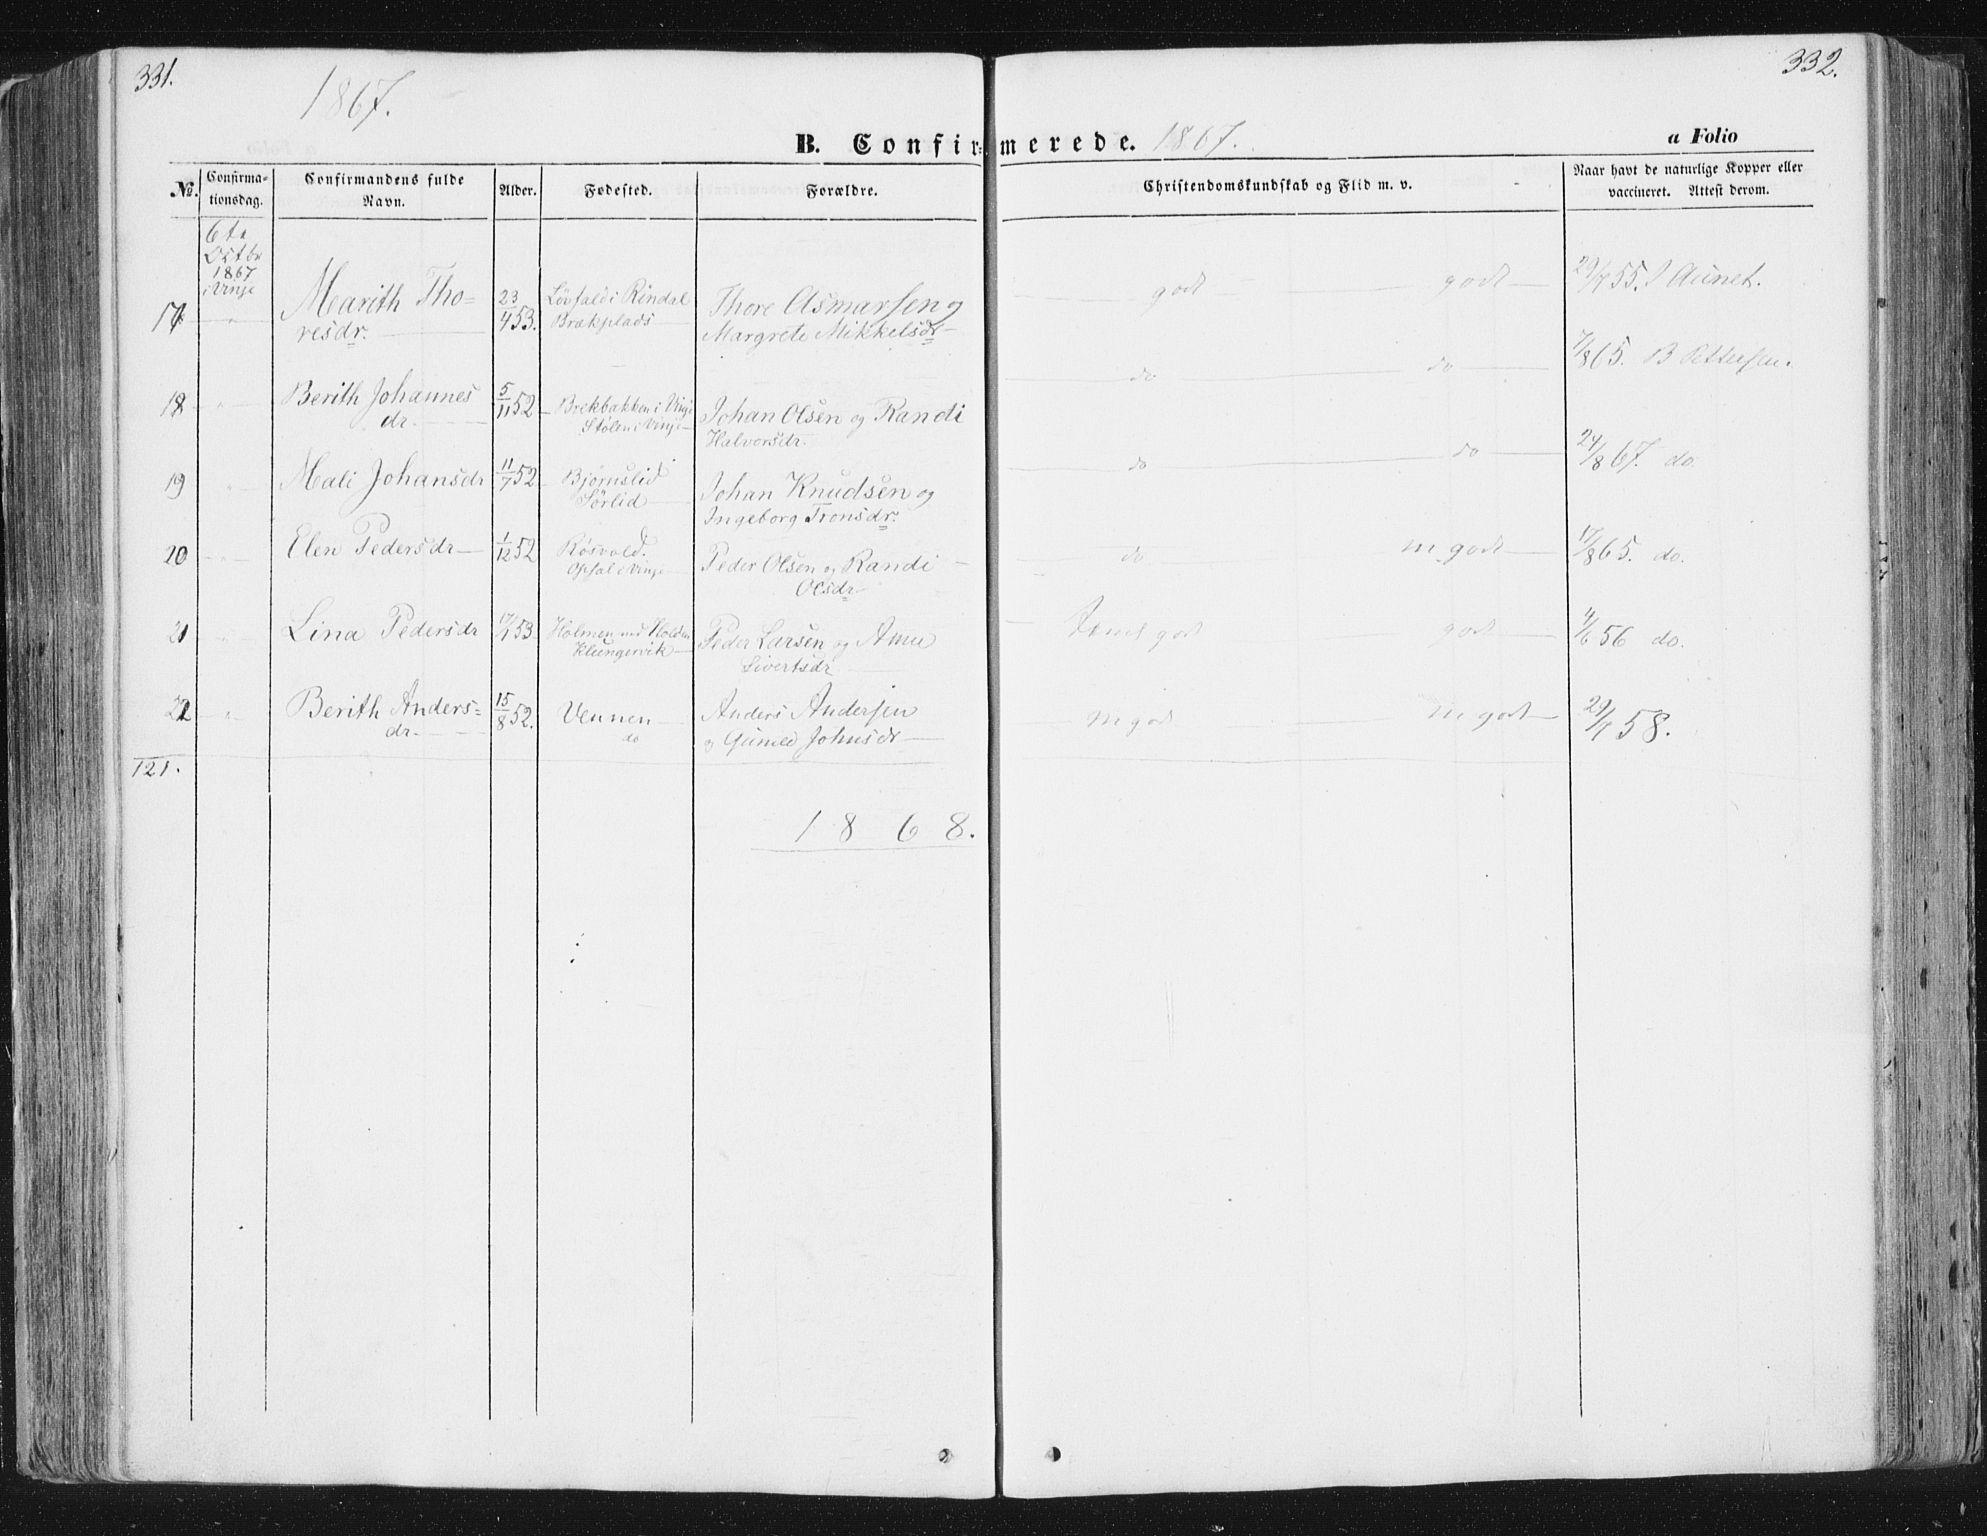 331.
1867.
332.
B. Confirmerede. 1867.
a Folio
No.
Confirmationsdag.
Confirmandens fulde Navn.
Alder.
Fødested.
Forældre.
Christendomskundskab og Flid m. v.
Naar havt de naturlige Kopper eller vaccineret. Attest derom.
6te
Octbr
1867
i Vinje
17 Marith Tho= 23/4 53. Løvfald i Rindal Thore Asmarsen og godt godt 29/7 55. J Aunet.
resdr. Brækplads Margrete Mikkelsdr
18 Berith Johannes 5/11 52 Brekbakken i Vinje Johan Olsen og Randi do do 17/8 65. B Pettersen.
dr. Stølen i Vinje Halvorsdr.
19 Mali Johansdr 11/7 52 Bjørnslid Johan Knudsen og do do 24/8 67. do.
Sørlid Ingeborg Tronsdr.
20 Elen Pedersdr 1/12 52 Røsvold. Peder Olsen og Randi do m godt 17/8 65. do.
Opsal i Vinje Olsdr
21 Lina Pedersdr 17/1 53 Holmen ved Holden Peder Larsen og Anne godt godt 4/6 56 do.
Klungervik Sivertsdr
22 Berith Anders= 15/8 52. Vennen Anders Andersen m godt m godt 29/7 58.
dr. do og Guneld Johnsdr
121.
1868.